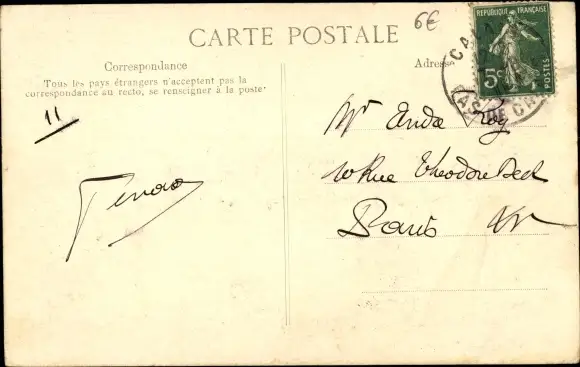 CARTE POSTALE
6€
Correspondance
Tous les pays étrangers n'acceptent pas la
correspondance au recto, se renseigner à la poste.
Adresse
REPUBLIQUE FRANÇAISE
5c
POSTES
CALA
PAS DE CA
11
Mr Roy
10 Rue Théodore Deck
Paris XV